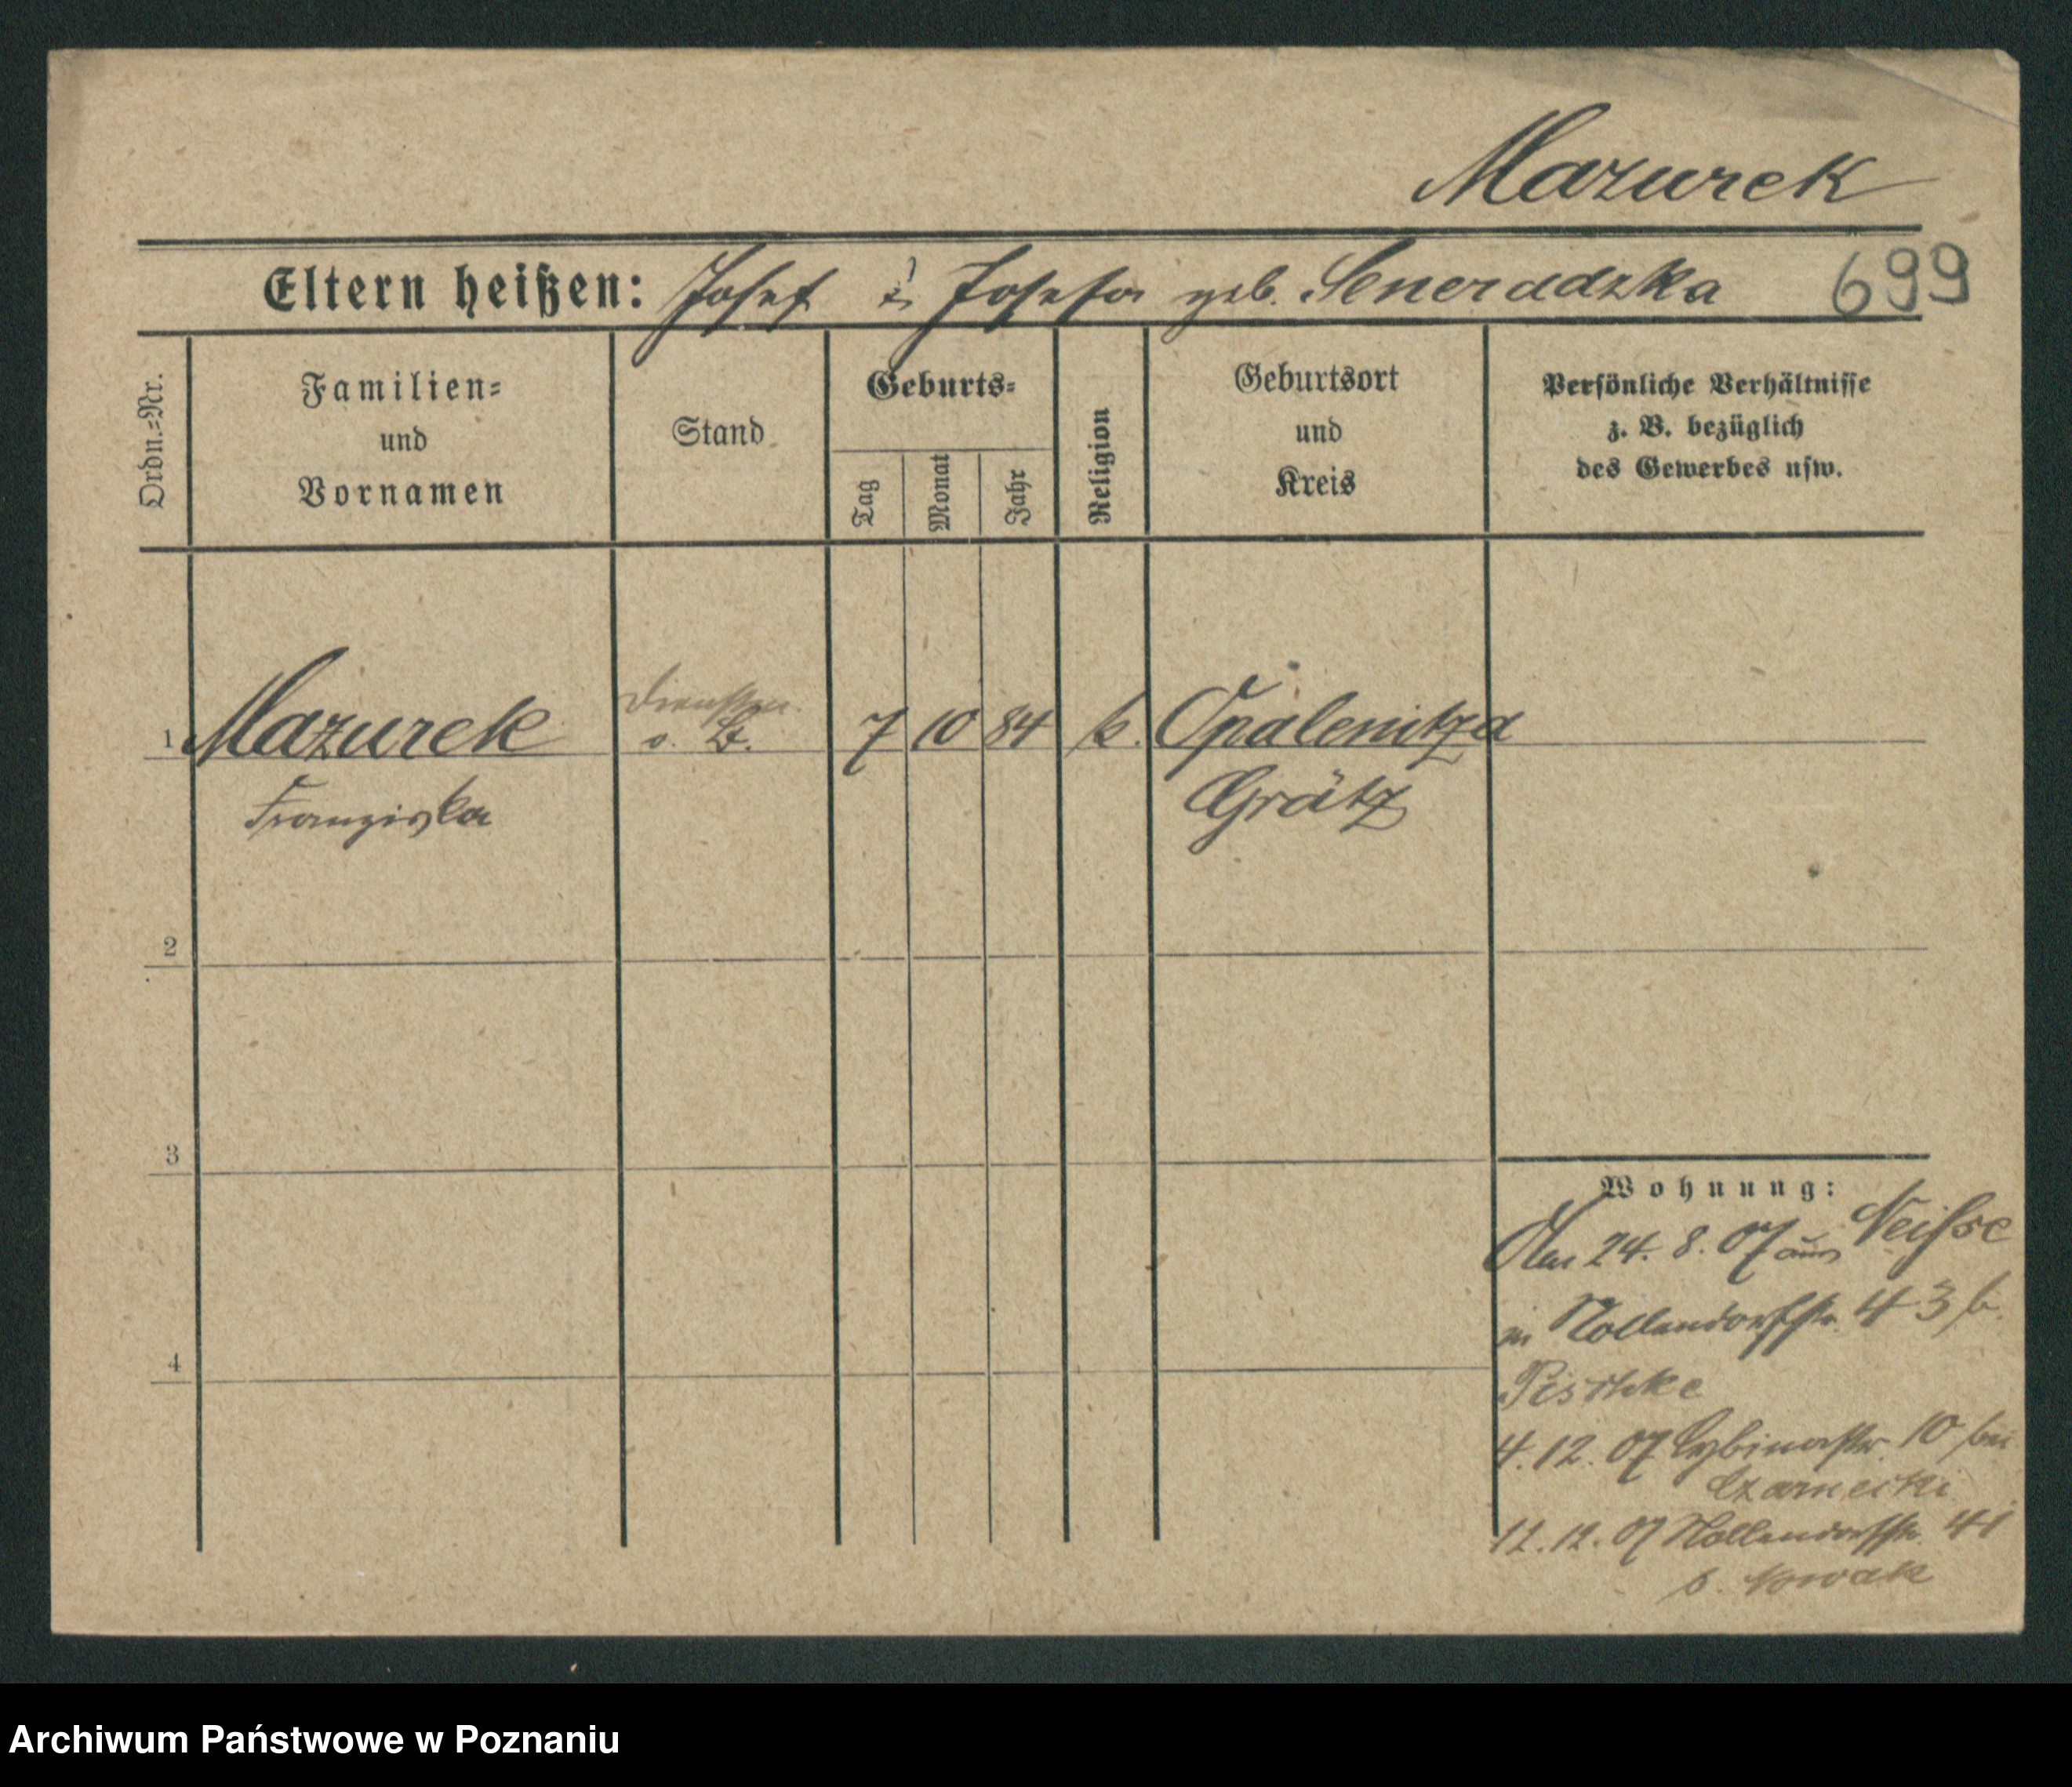 Mazurek
Eltern heißen: Josef u. Josefa geb. Seneradzka 699
Ordn.=Nr.
Familien=
und
Vornamen
Stand
Geburts=
Tag
Monat
Jahr
Religion
Geburtsort
und
Kreis
Persönliche Verhältnisse
z. B. bezüglich
des Gewerbes usw.
1 Mazurek 7 10 84 k. Opalenitza
Franziska Grätz
2
3
4
Wohnung:
24. 8. 07 aus Neisse
in Nollendorfstr. 43 b.
Pischke
4. 12. 07 Cybinastr. 10 bei
Czarnecki
12. 12. 07 Nollendorfstr. 41
b. Nowak
Archiwum Państwowe w Poznaniu